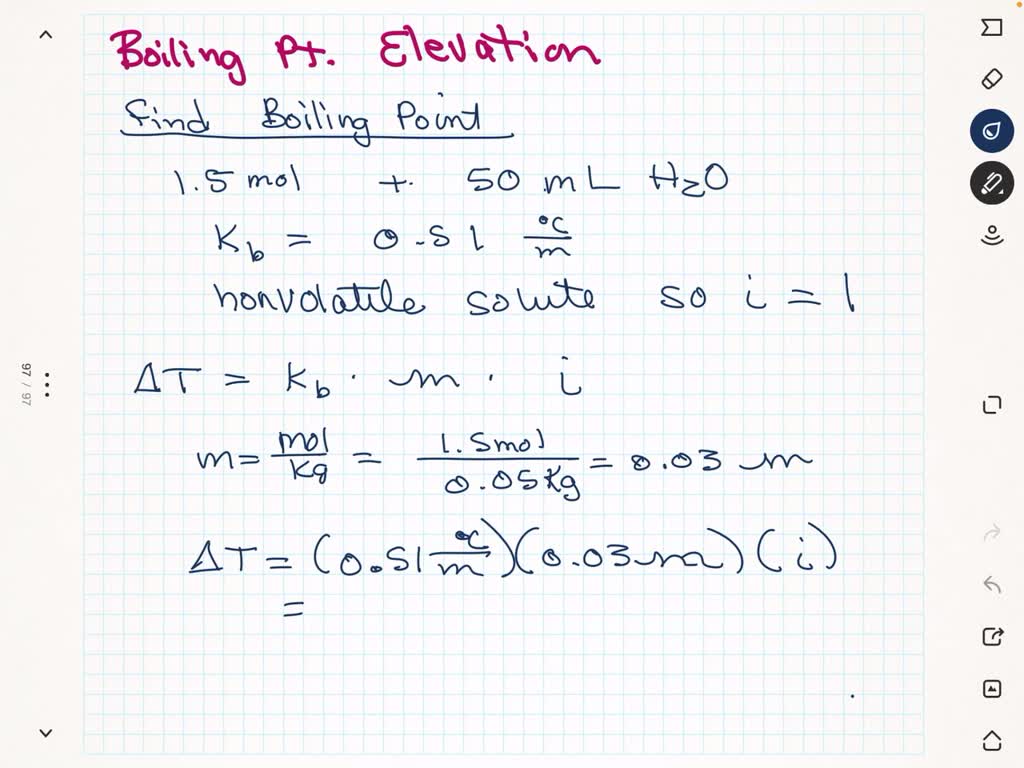 Boiling Pt. Elevation
Find Boiling Point
1.5 mol + 50 mL H₂O
K_b = 0.51 °C/m
nonvolatile solute so i = 1
ΔT = K_b · m · i
m = mol/kg = 1.5mol/0.05kg = 0.03 m
ΔT = (0.51 °C/m)(0.03 m)(i)
=
97 / 97